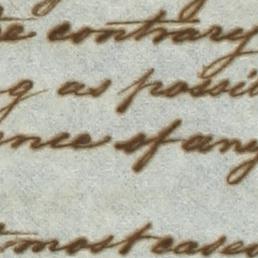 contrary
g as possi
ence of any
most cases